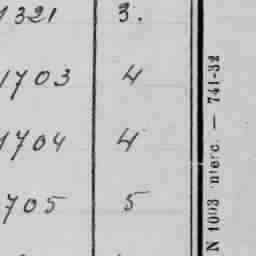 1321 3.
1703 4
1704 4
705 5
N 1003 — 741-32